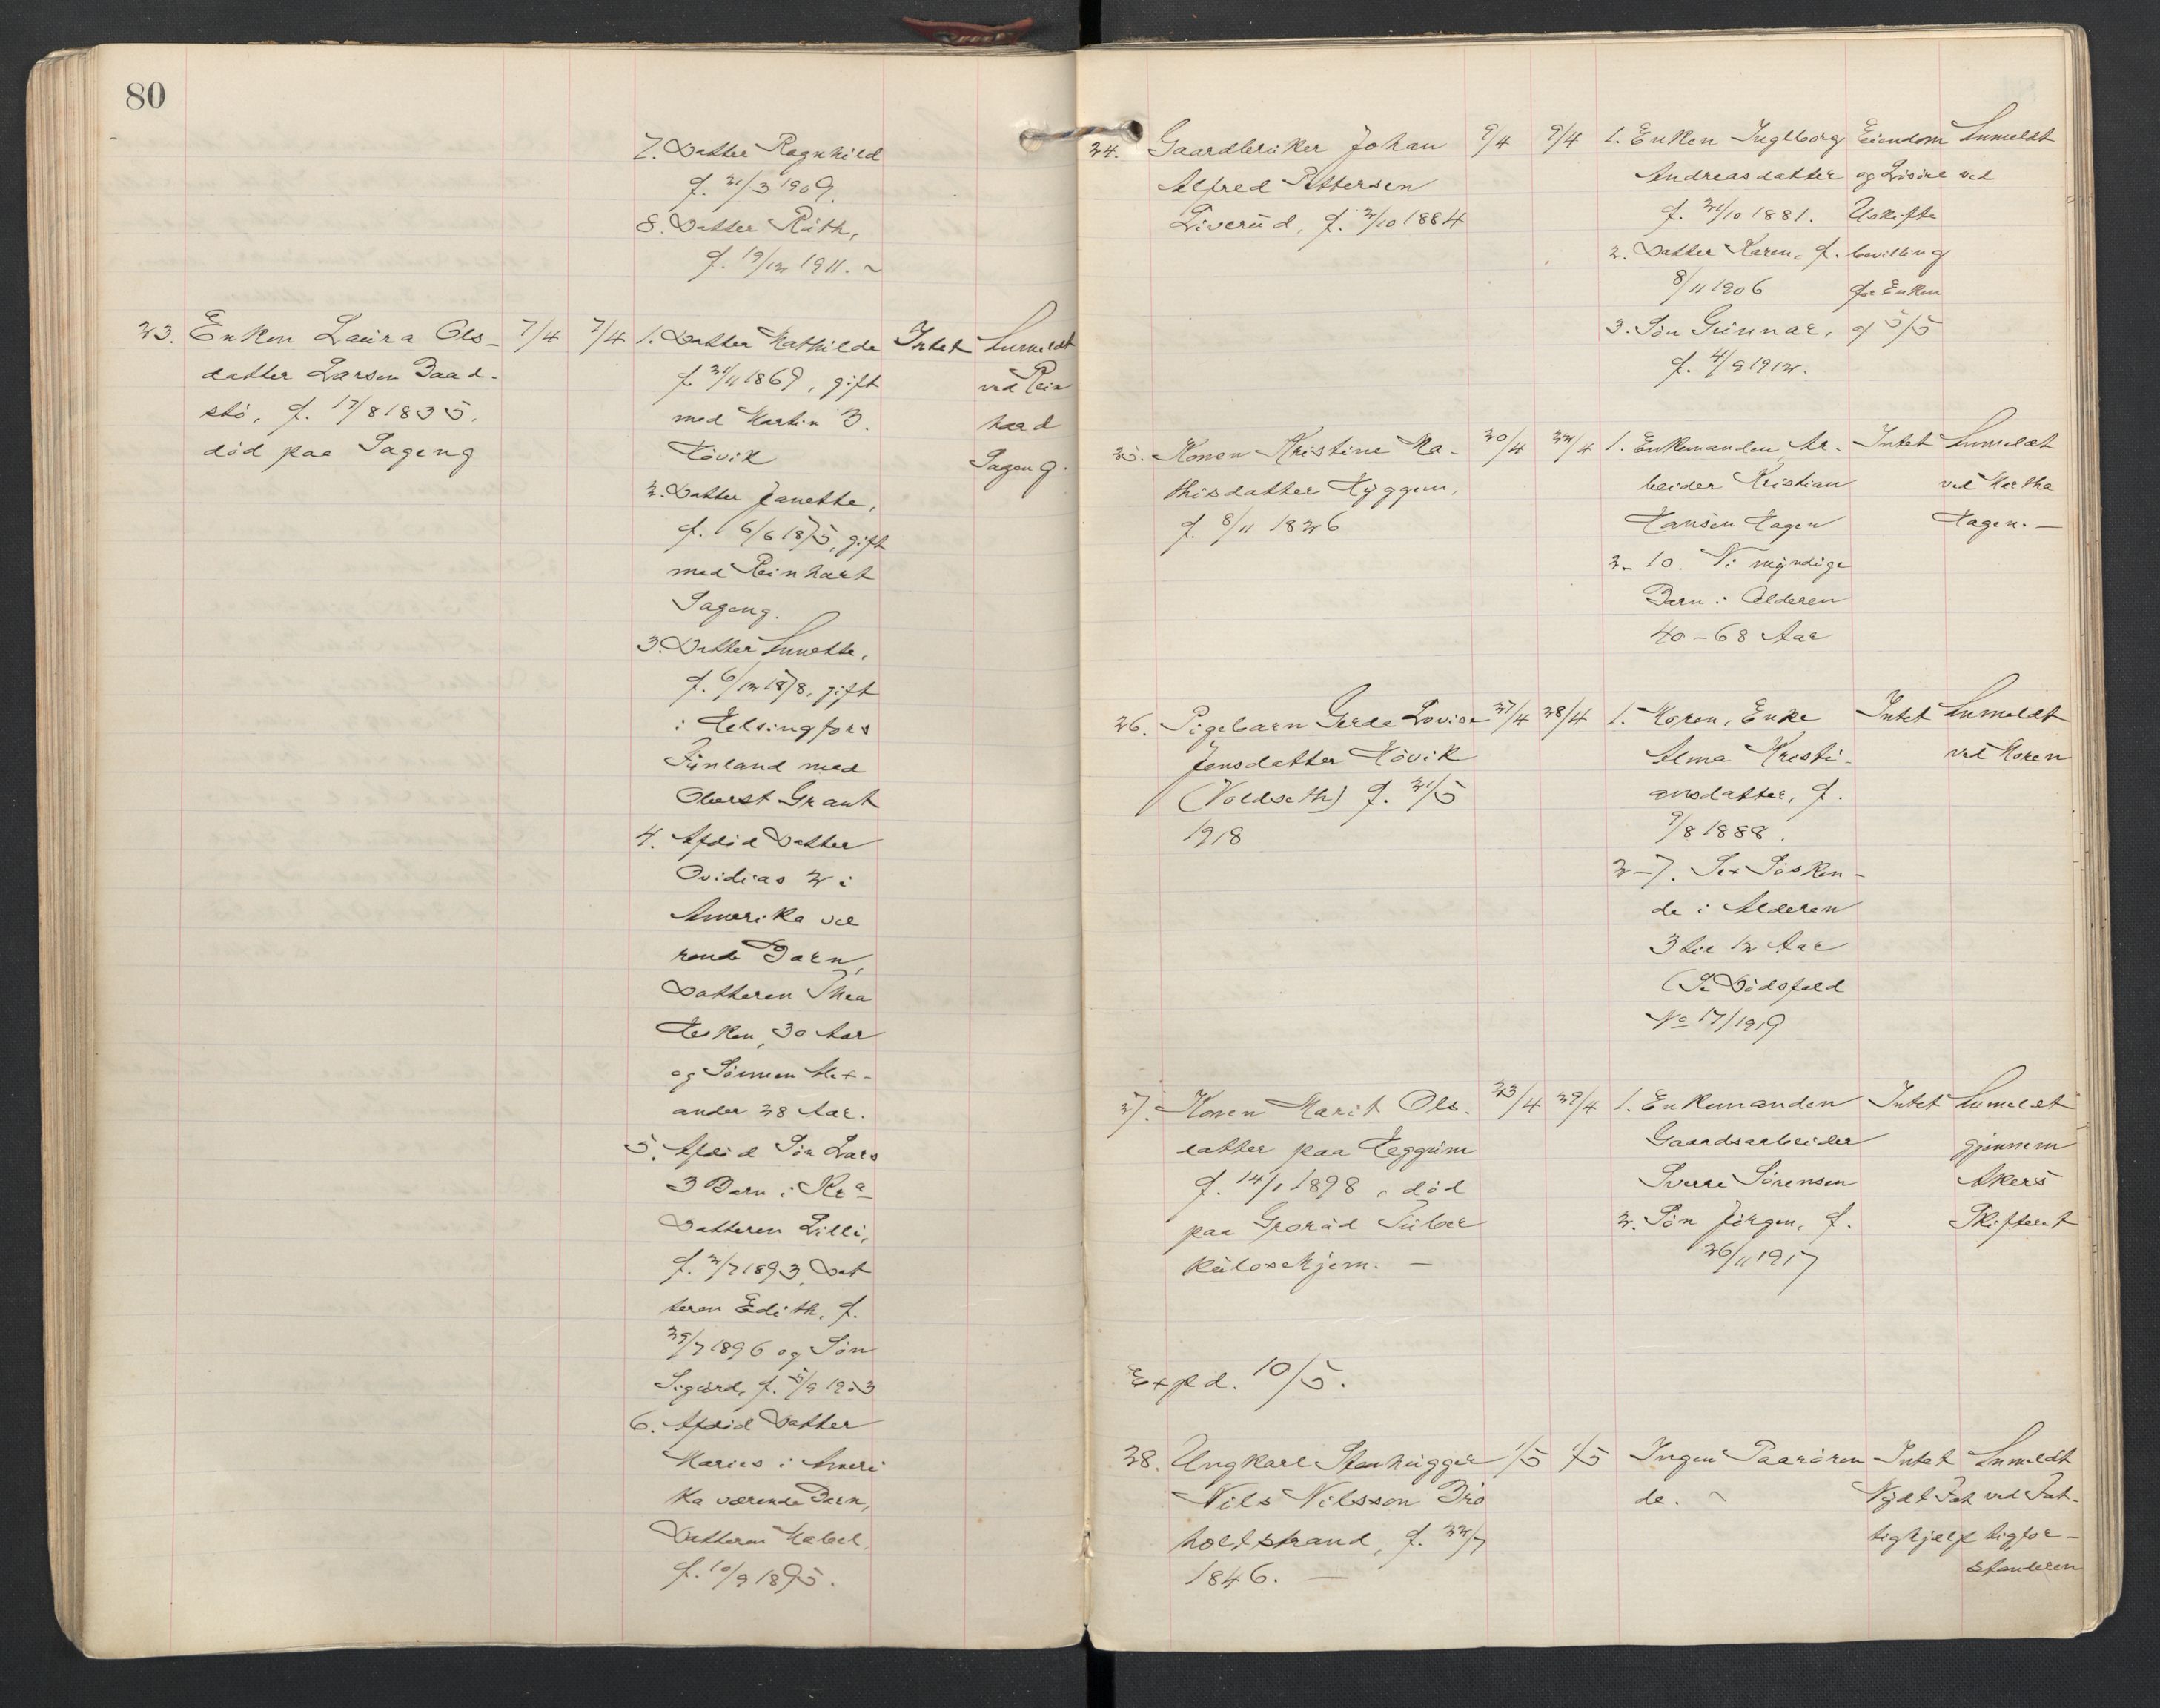 80
7. Datter Ragnhild
f. 21/3 1909.
8. Datter Ruth,
f. 19/12 1911. ~
23. Enken Laura Ols-
datter Larsen Baad-
stø, f. 17/8 1835,
død paa Sageng
7/4 7/4
1. Datter Mathilde
f. 21/11 1869, gift
med Martin B.
Høvik
2. Datter Janette,
f. 6/6 1875, gift
med Reinhart
Sageng.
3. Datter Annette,
f. 6/12 1878, gift
i Helsingfors
Finland med
Oberst Grant
4. Afdød Datter
Ovidias 2 i
Amerika væ
rende Barn,
Datteren Thea
30 Aar
og Sønnen Alex-
ander 28 Aar.
5. Afdød Søn Lars
3 Barn i Kra
Datteren Lilli,
f. 2/7 1893, Dat
teren Edith, f.
29/7 1896 og Søn
Sigurd, f. 5/9 1903
6. Afdød Datter
Maries i Ameri
ka værende Barn,
Datteren Mabel,
f. 10/9 1895.
Intet
Anmeldt
ved Rein
hard
Sageng.
24. Gaardbruker Johan
Alfred Pettersen
Liverud, f. 2/10 1884
9/4 9/4
1. Enken Ingeborg
Andreasdatter
f. 21/10 1881.
2. Datter Karen, f.
8/11 1906
3. Søn Gunnar,
f. 4/9 1912.
Eiendom
og Løsøre
Uskifte
bevilling
for Enken
af 5/5
Anmeldt
ved
25. Konen Kristine Ma-
thisdatter Hyggen,
f. 8/11 1826
20/4 22/4
1. Enkemanden Ar-
beider Kristian
Hansen Hagen
2-10. Ni myndige
Barn i Alderen
40-68 Aar
Intet
Anmeldt
ved Martha
Hagen. -
26. Pigebarn Gerda Lovise
Jensdatter Høvik
(Voldseth) f. 21/5
1918
27/4 28/4
1. Moren, Enke
Alma Kristi-
ansdatter, f.
9/8 1888.
2-7. Sex Søsken-
de i Alderen
3 til 12 Aar
(Se Dødsfald
No 17/1919
Intet
Anmeldt
ved Moren
27. Konen Marit Ols-
datter paa Heggum
f. 14/1 1898, død
paa Grorud Tuber
kulosehjem. -
23/4 29/4
1. Enkemanden
Gaardsarbeider
Sverre Sørensen
2. Søn Jørgen, f.
26/11 1917
Intet
Anmeldt
gjennem
Akers
Skifteret
Expd. 10/5.
28. Ungkarl Stenhugger
Nils Nilsson Bro
holtstrand, f. 22/7
1846. -
1/5 1/5
Ingen Paarøren
de. ~
Intet
Nydt Fat
tighjelp
Anmeldt
ved Fat-
tigfor-
standeren